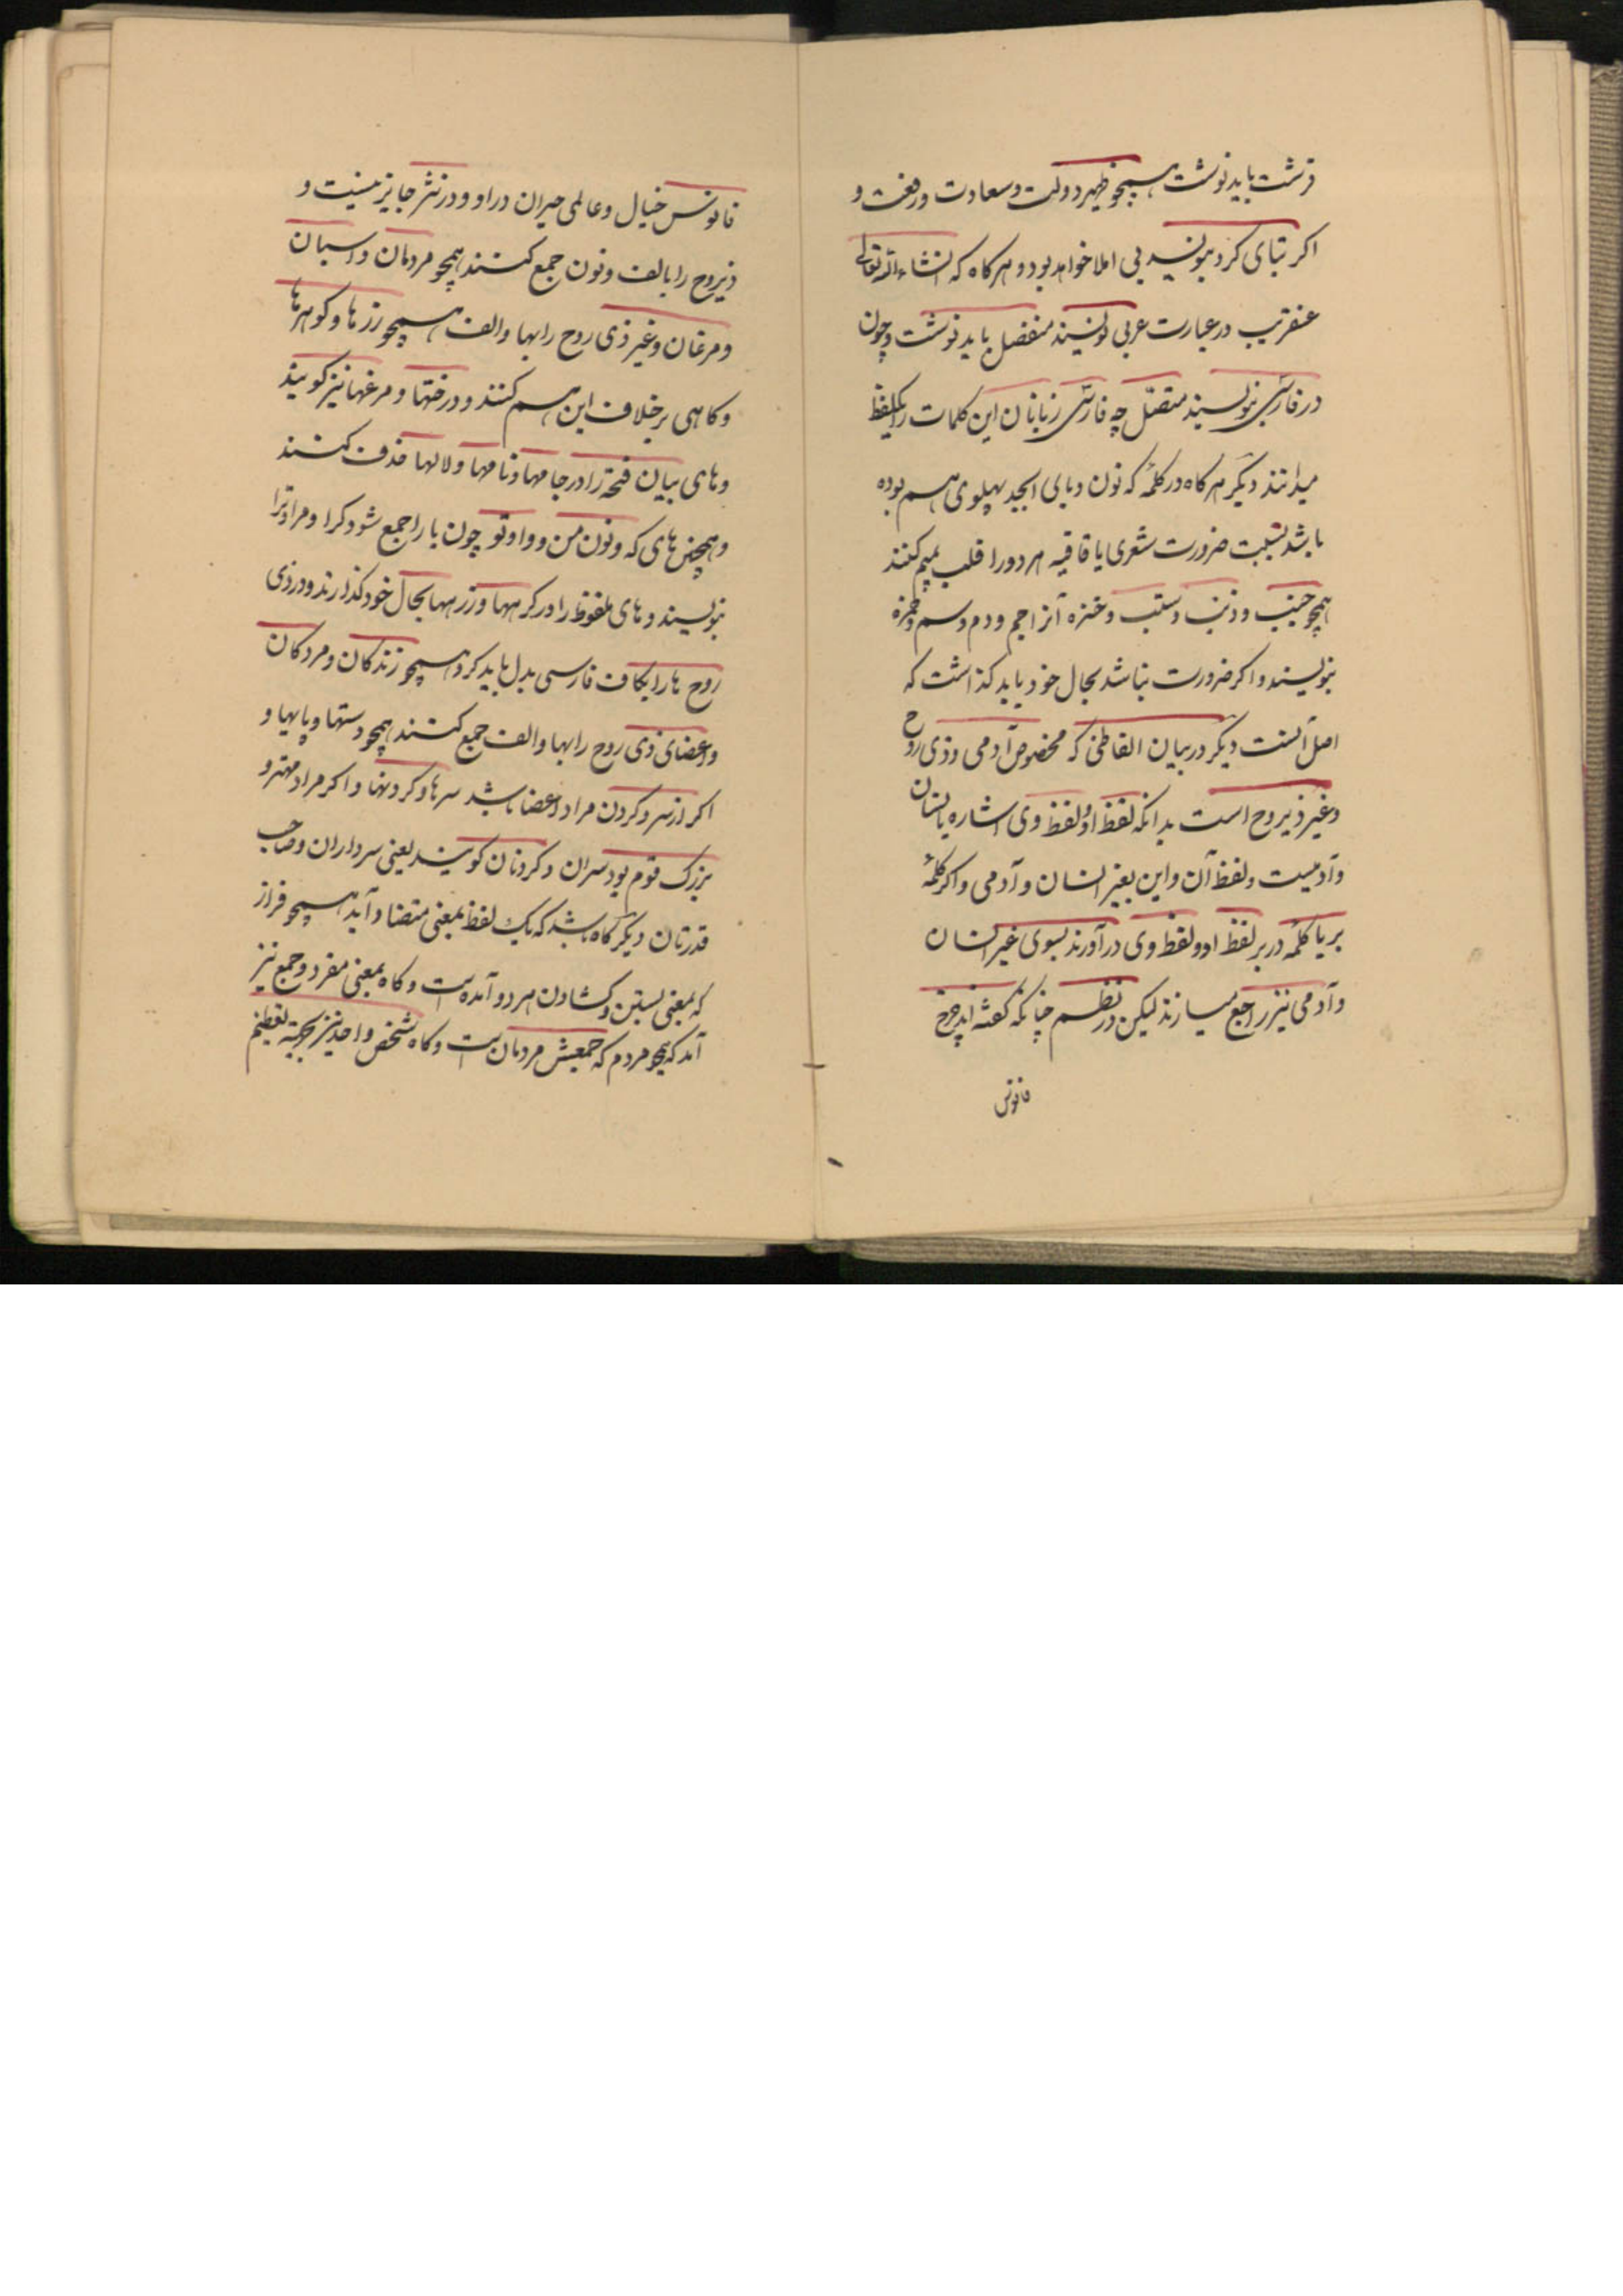 قرشت باید نوشت همچو ظهیر دولت و سعادت و رفعت و
اکر بتای کرد بنویسد بی املا خواهد بود و هرکاه که انشاءالله تعالی
عنقریب در عبارت عربی نویسند منفصل باید نوشت و چون
در فارسی بنویسند متصل چه فارسی زبانان این کلمات را یکلفظ
میدانند دیکر هرکاه در کلمهٔ که نون و بای ابجد پهلوی هم بوده
باشد بسبب ضرورت شعری یا قافیه هر دو را قلب بمیم کنند
همچو جنب و ذنب و سنب و خنزه آنرا جم و دم و سم و خمزه
بنویسند و اکر ضرورت نباشد بحال خود باید کذاشت که
اصل آنست دیکر در بیان الفاظی که مخصوص آدمی و ذی روح
و غیر ذیروح است بدانکه لفظ او و لفظ وی اشاره بانسان
و آدمیست و لفظ آن و این بغیر انسان و آدمی و اکر کلمهٔ
بر یا کلمهٔ در بر لفظ او و لفظ وی درآورند بسوی غیر انسان
و آدمی نیز راجع میسازند لیکن در نظم چنانکه کفته اند چرخ
فانوس
فانوس خیال و عالمی حیران در او و در نثر جایز نیست و
ذیروح را بالف و نون جمع کنند همچو مردمان و اسپان
و مرغان و غیر ذی روح را بها و الف همچو رزها و کوهرها
و کاهی برخلاف این هم کنند و درختها و مرغها نیز کویند
و های بیان فتحه را در جامها و نامها و لالها حذف کنند
و همچنین های که و نون من و واو تو چون با را جمع شود کرا و مرا و ترا
بنویسند و های ملفوظ را در کرهها و زرهها بحال خود کذارند و در ذی
روح ها را بکاف فارسی بدل باید کرد همچو زندکان و مردکان
و اعضای ذی روح را بها و الف جمع کنند همچو دستها و پایها و
اکر از سر و کردن مراد اعضا باشد سرها و کردنها و اکر مراد مهتر و
بزرک قوم بود سران و کردنان کویند یعنی سرداران و صاحب
قدرتان دیکر کاه باشد که یک لفظ بمعنی متضاد آید همچو فراز
که بمعنی بستن و کشادن هر دو آمده است و کاه بمعنی مفرد و جمع نیز
آمد که همچو مردم که جمعش مردمان است و کاه شخص واحد نیز بجهة تعظیم